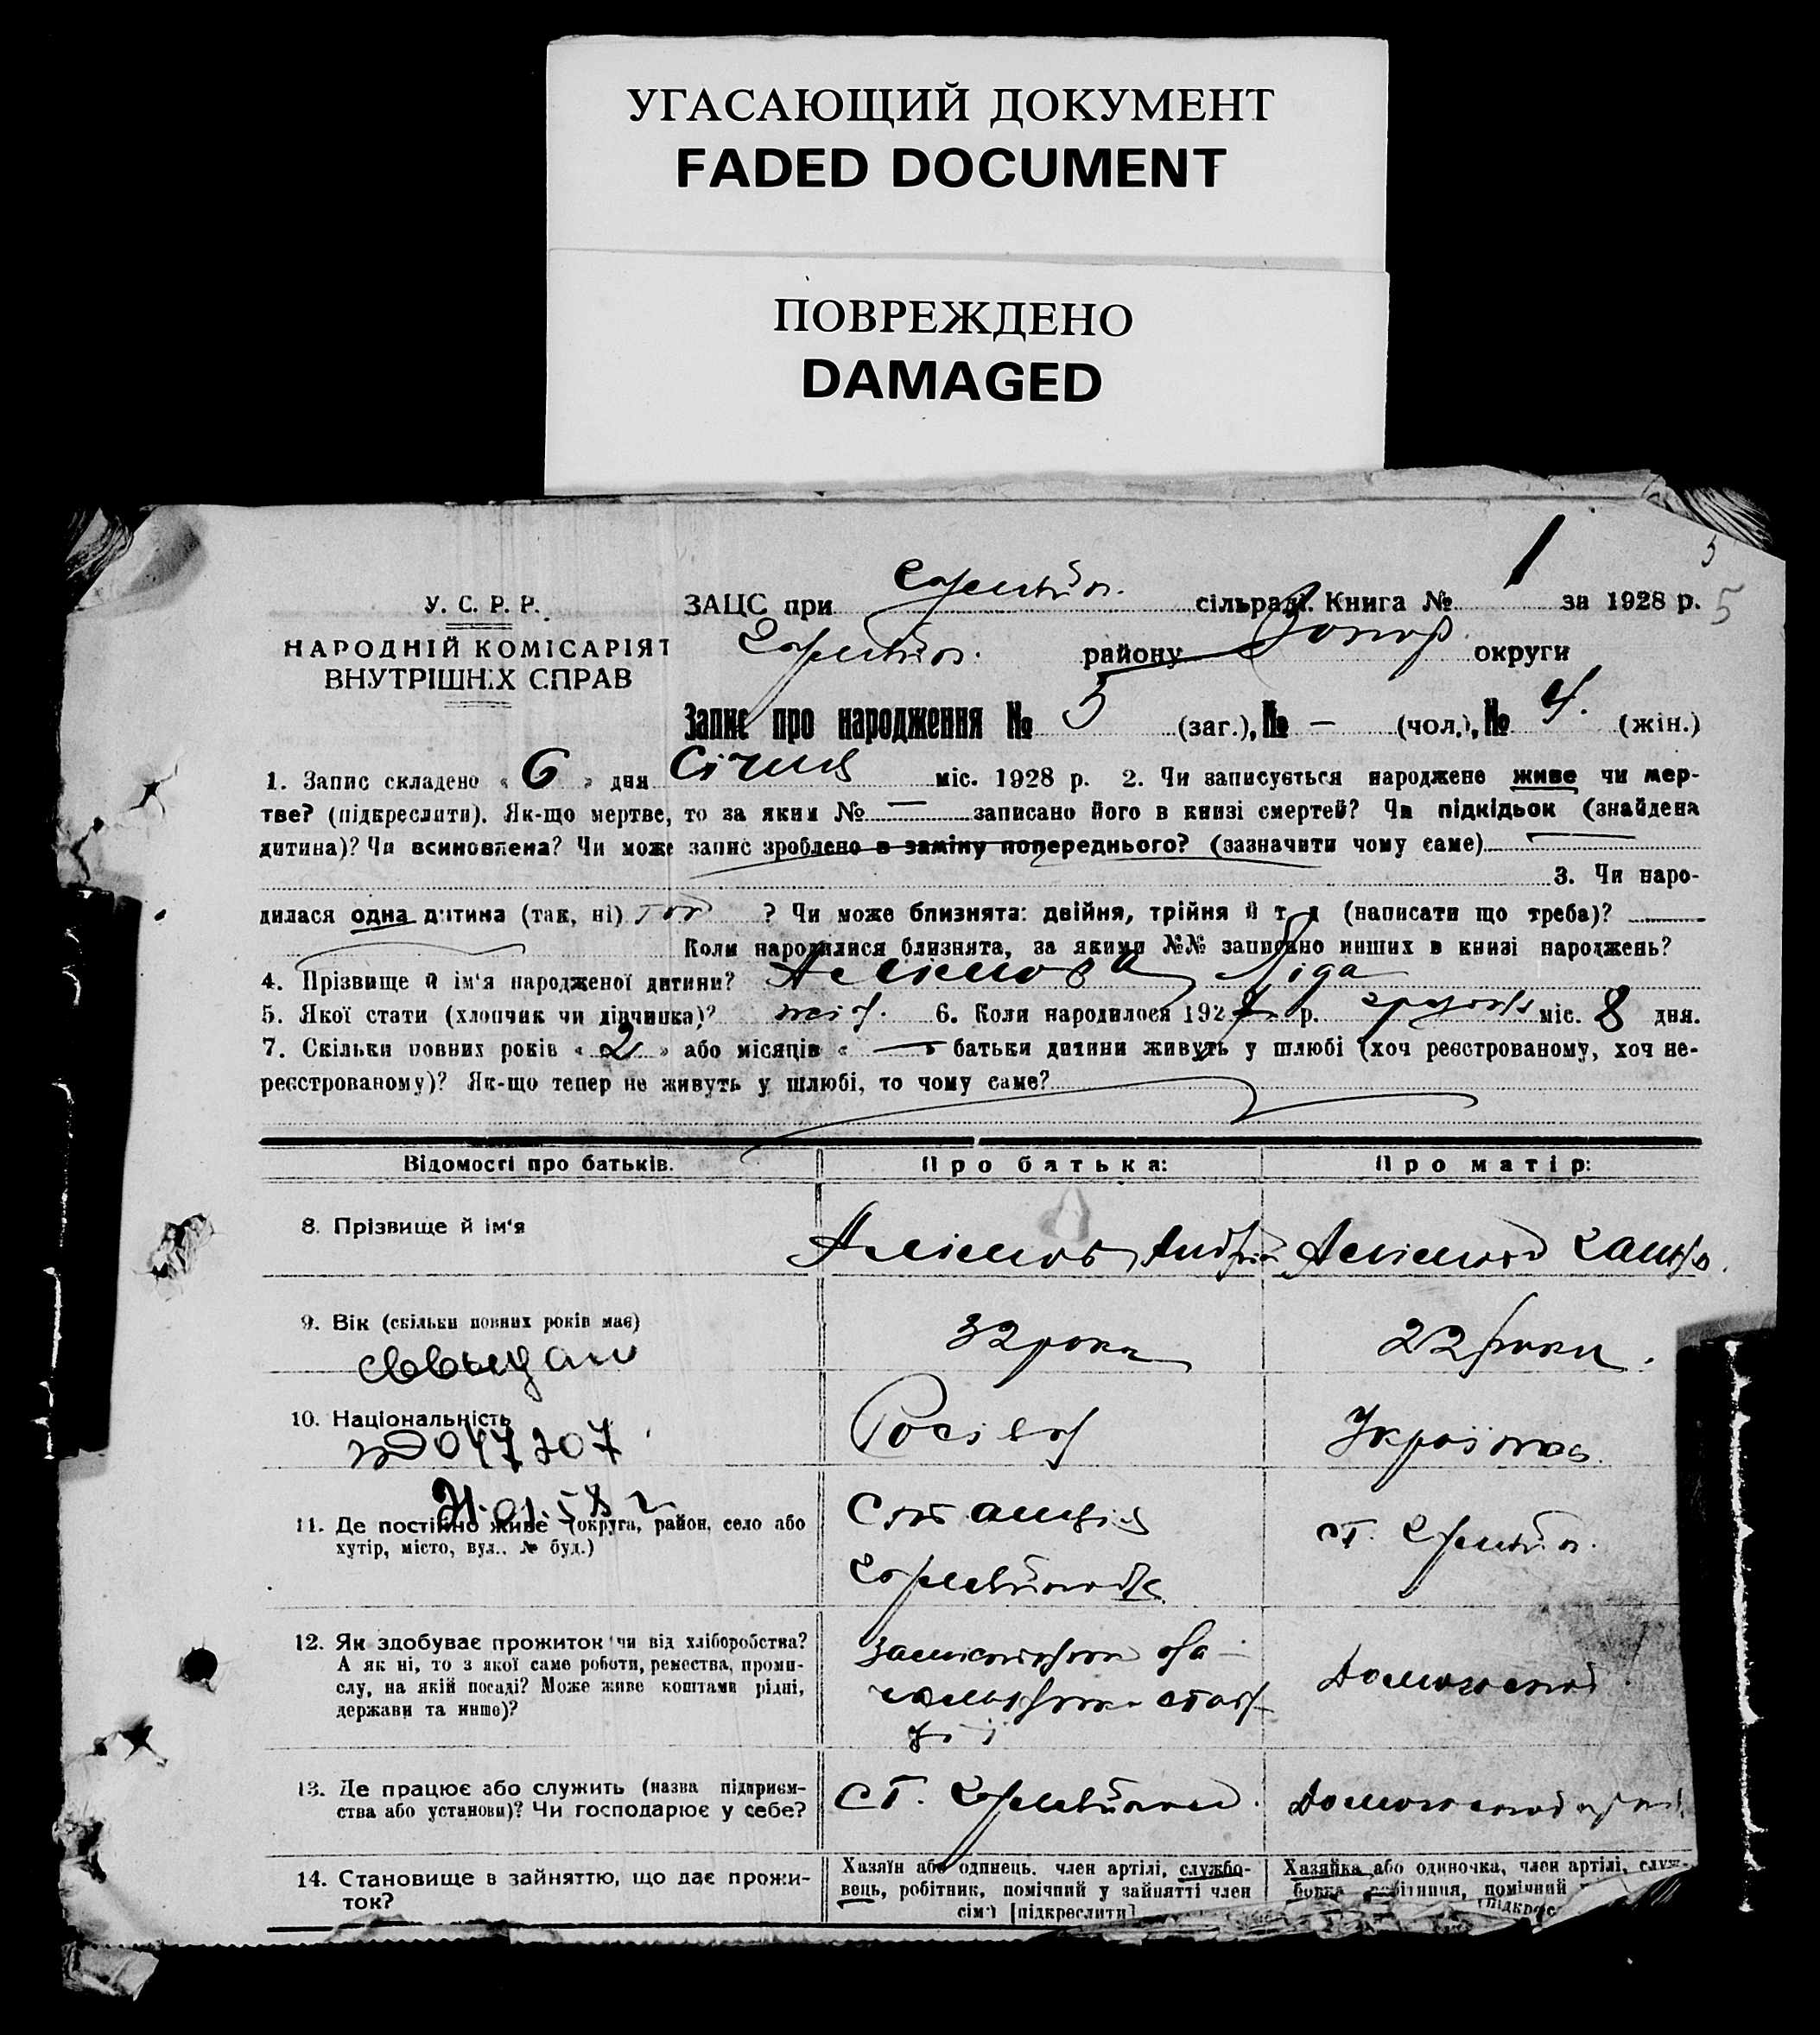 УГАСАЮЩИЙ ДОКУМЕНТ
FADED DOCUMENT
ПОВРЕЖДЕНО
DAMAGED
1
5
5
У. С. Р. Р.
НАРОДНІЙ КОМІСАРІЯТ
ВНУТРІШНІХ СПРАВ
ЗАЦС при сільраді. Книга № за 1928 р.
району Запор. округи
Запис про народження № 5 (заг.), № — (чол.), № 4. (жін.)
1. Запис складено « 6 » дня Січня міс. 1928 р. 2. Чи записується народжене живе чи мер-
тве? (підкреслити). Як-що мертве, то за яким № — записано його в книзі смертей? Чи підкідьок (знайдена
дитина)? Чи всиновлена? Чи може запис зроблено в заміну попереднього? (зазначити чому саме)
3. Чи наро-
дилася одна дитина (так, ні) так ? Чи може близнята: двійня, трійня й т д (написати що треба)?
Коли народилися близнята, за якими №№ записано инших в книзі народжень?
4. Прізвище й ім'я народженої дитини? Алімова Ліда
5. Якої стати (хлопчик чи дівчинка)? жін. 6. Коли народилося 1927 р. грудня міс. 8 дня.
7. Скільки повних років « 2 » або місяців « — » батьки дитини живуть у шлюбі (хоч реєстрованому, хоч не-
реєстрованому)? Як-що тепер не живуть у шлюбі, то чому саме?
Відомості про батьків. Про батька: Про матір:
8. Прізвище й ім'я Алімов Андрій Алімова
9. Вік (скільки повних років має) 32 роки 22 роки.
10. Національність Українка
№ 047207
21.01.58 г
11. Де постійно живе (округа, район, село або
хутір, місто, вул., № буд.) Станція ст.
12. Як здобуває прожиток чи від хліборобства?
А як ні, то з якої саме роботи, ремества, проми-
слу, на якій посаді? Може живе коштами рідні,
держави та инше)?
13. Де працює або служить (назва підприєм-
ства або установи)? Чи господарює у себе? ст.
14. Становище в зайняттю, що дає прожи-
ток?
Хазяїн або одинець, член артілі, службо-
вець, робітник, помічний у зайнятті член
сім'ї [підкреслити]
Хазяйка або одиночка, член артілі, служ-
бовка робітниця, помічний